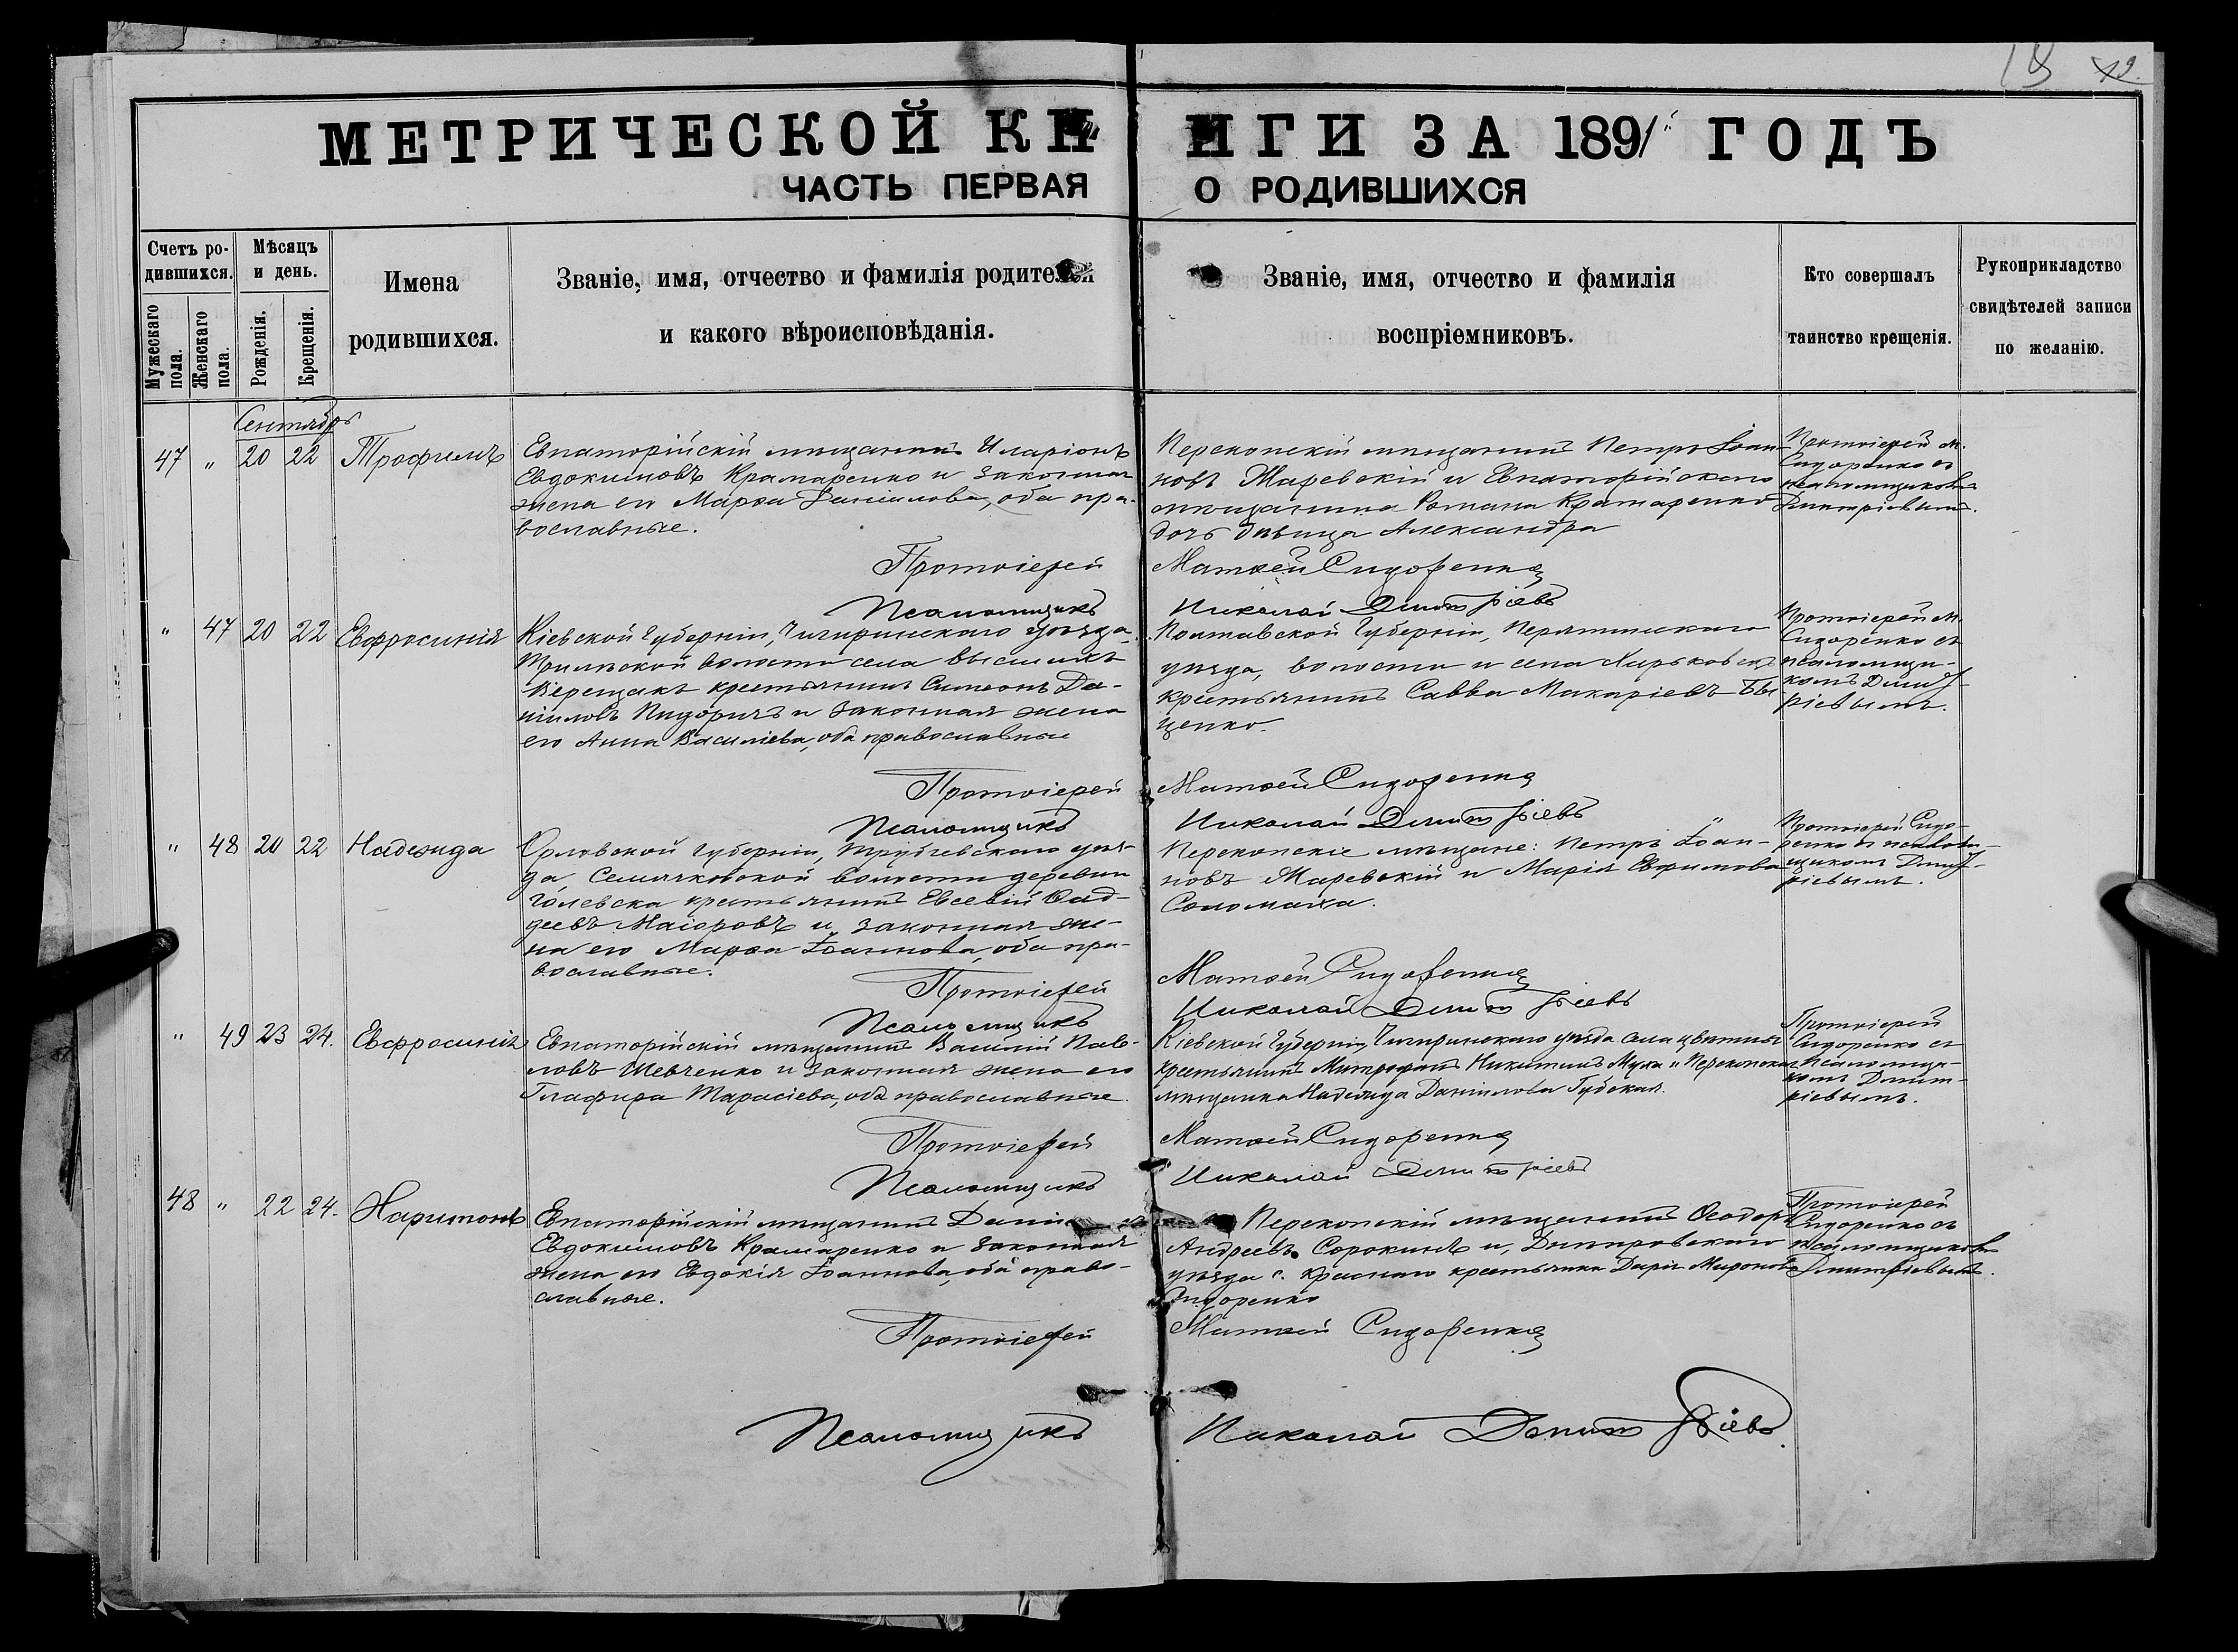 19.
МЕТРИЧЕСКОЙ КНИГИ ЗА 1891 ГОДЪ
ЧАСТЬ ПЕРВАЯ О РОДИВШИХСЯ
Счетъ ро-
дившихся.
Мужескаго
пола.
Женскаго
пола.
Мѣсяцъ
и день.
Рожденія.
Крещенія.
Имена
родившихся.
Званіе, имя, отчество и фамилія родителей
и какого вѣроисповѣданія.
Званіе, имя, отчество и фамилія
воспріемниковъ.
Кто совершалъ
таинство крещенія.
Рукоприкладство
свидѣтелей записи
по желанію.
Сентябрь
47 " 20 22 Трофимъ
Евпаторійскій мѣщанинъ Иларіонъ
Евдокимовъ Крамаренко и законная
жена его Марѳа Даніилова, оба пра-
вославные.
Перекопскій мѣщанинъ Петръ Іоан-
новъ Маревскій и Евпаторійскаго
мѣщанина Романа Крамаренко
дочь дѣвица Александра
Протоіерей М.
Сидоренко съ
псаломщикомъ
Димитріевымъ.
Протоіерей Матѳей Сидоренко
Псаломщикъ Николай Димитріевъ
" 47 20 22 Евфросинія
Кіевской губерніи, Чигиринскаго уѣзда,
Трилѣской волости села
Верещакъ крестьянинъ Симеонъ Да-
ніиловъ Сидоричъ и законная жена
его Анна Василіева, оба православные
Полтавской губерніи, Пирятинскаго
уѣзда, волости и села Харьковецъ
крестьянинъ Савва Макаріевъ Бы-
ценко.
Протоіерей М.
Сидоренко съ
псаломщи-
комъ Димит-
ріевымъ.
Протоіерей Матѳей Сидоренко
Псаломщикъ Николай Димитріевъ
" 48 20 22 Надежда
Орловской губерніи, Трубчевскаго уѣз-
да, Семячковской волости деревни
крестьянинъ Евсевій Ѳад-
деевъ Маіоровъ и законная же-
на его Марѳа Іоаннова, оба пра-
вославные.
Перекопскіе мѣщане: Петръ Іоан-
новъ Маревскій и Марія Евфимова
Соломаха.
Протоіерей Сидо-
ренко съ псалом-
щикомъ Димит-
ріевымъ.
Протоіерей Матѳей Сидоренко
Псаломщикъ Николай Димитріевъ
" 49 23 24. Евфросинія
Евпаторійскій мѣщанинъ Василій Пав-
ловъ Шевченко и законная жена его
Глафира Тарасіева, оба православные.
Кіевской губерніи, Чигиринскаго уѣзда села Цвѣтной
крестьянинъ Митрофанъ Никитинъ Муха и Перекопская
мѣщанка Надежда Даніилова Губская.
Протоіерей
Сидоренко съ
псаломщи-
комъ Димит-
ріевымъ.
Протоіерей Матѳей Сидоренко
Псаломщикъ Николай Димитріевъ
48 " 22 24. Харитонъ
Евпаторійскій мѣщанинъ
Евдокимовъ Крамаренко и законная
жена его Евдокія Іоаннова, оба право-
славные.
Перекопскій мѣщанинъ Ѳеодоръ
Андреевъ Сорокинъ и Днѣпровскаго
уѣзда с. Краснаго крестьянка Дарія Миронова
Сидоренко
Протоіерей
Сидоренко съ
псаломщикомъ
Димитріевымъ.
Протоіерей Матѳей Сидоренко
Псаломщикъ Николай Димитріевъ.